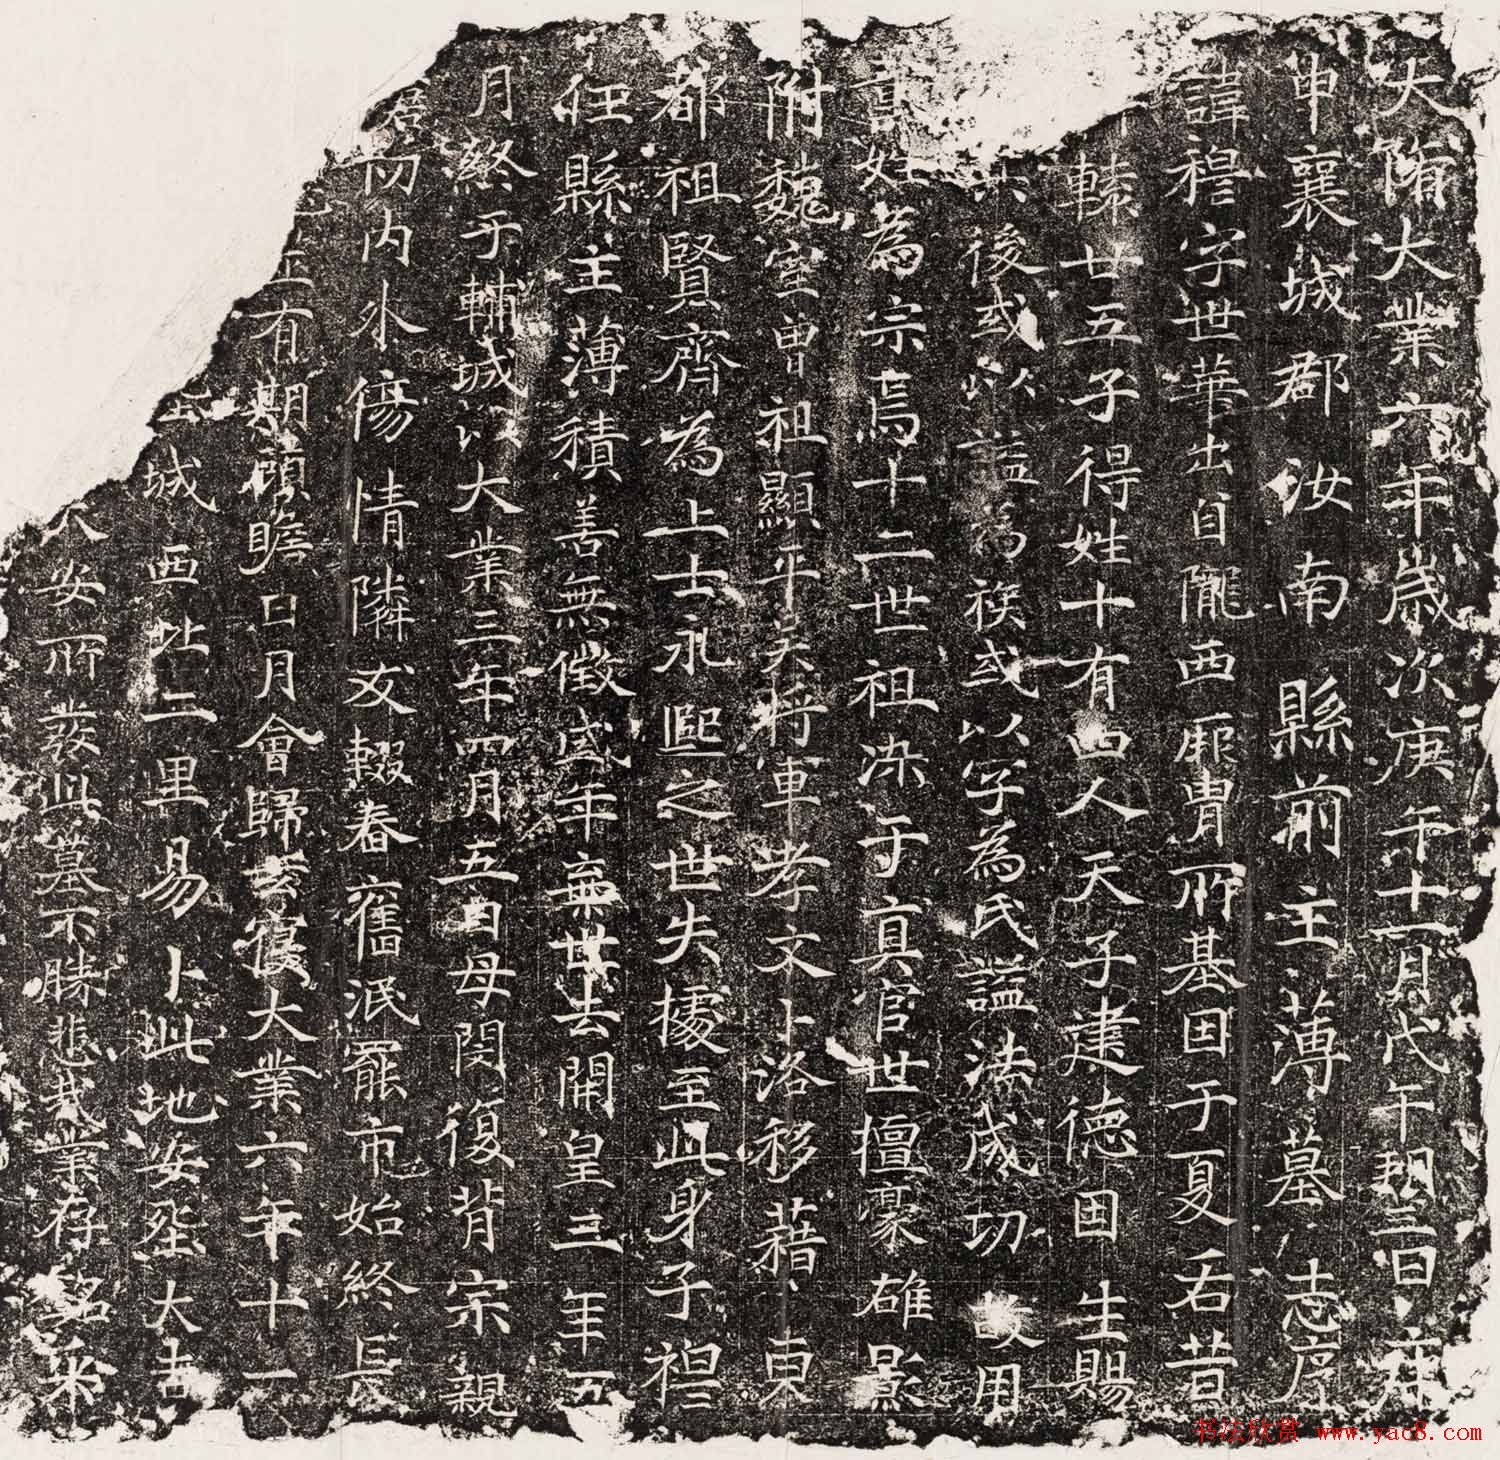 大隋大業六年歲次庚午十一月戊午朔三日庚
申襄城郡汝南縣前主薄墓志序
諱裎字世華出自隴西厥胄所基因于夏右昔
轅廿五子得姓十有四人天子建德因生賜
後或以謚為族或以字為氏謚法成切故用
姓為宗焉十二世祖深于真官世擅豪雄景
附魏室曾祖顯平关將軍孝文卜洛移藉東
都祖賢齊為上士永熙之世失據至此身子裎
任縣主薄積善無徵盛年棄世去開皇三年五
月終于輔城以大業三年四月五日母閔復背宗親
內外傷情隣友輟舂舊泯罷市始終長
有期顧瞻日月會歸去復大業六年十一
城西北二里易卜此地安窆大吉
安所裝此墓不勝悲哉業存銘采
书法欣赏 www.yac8.com